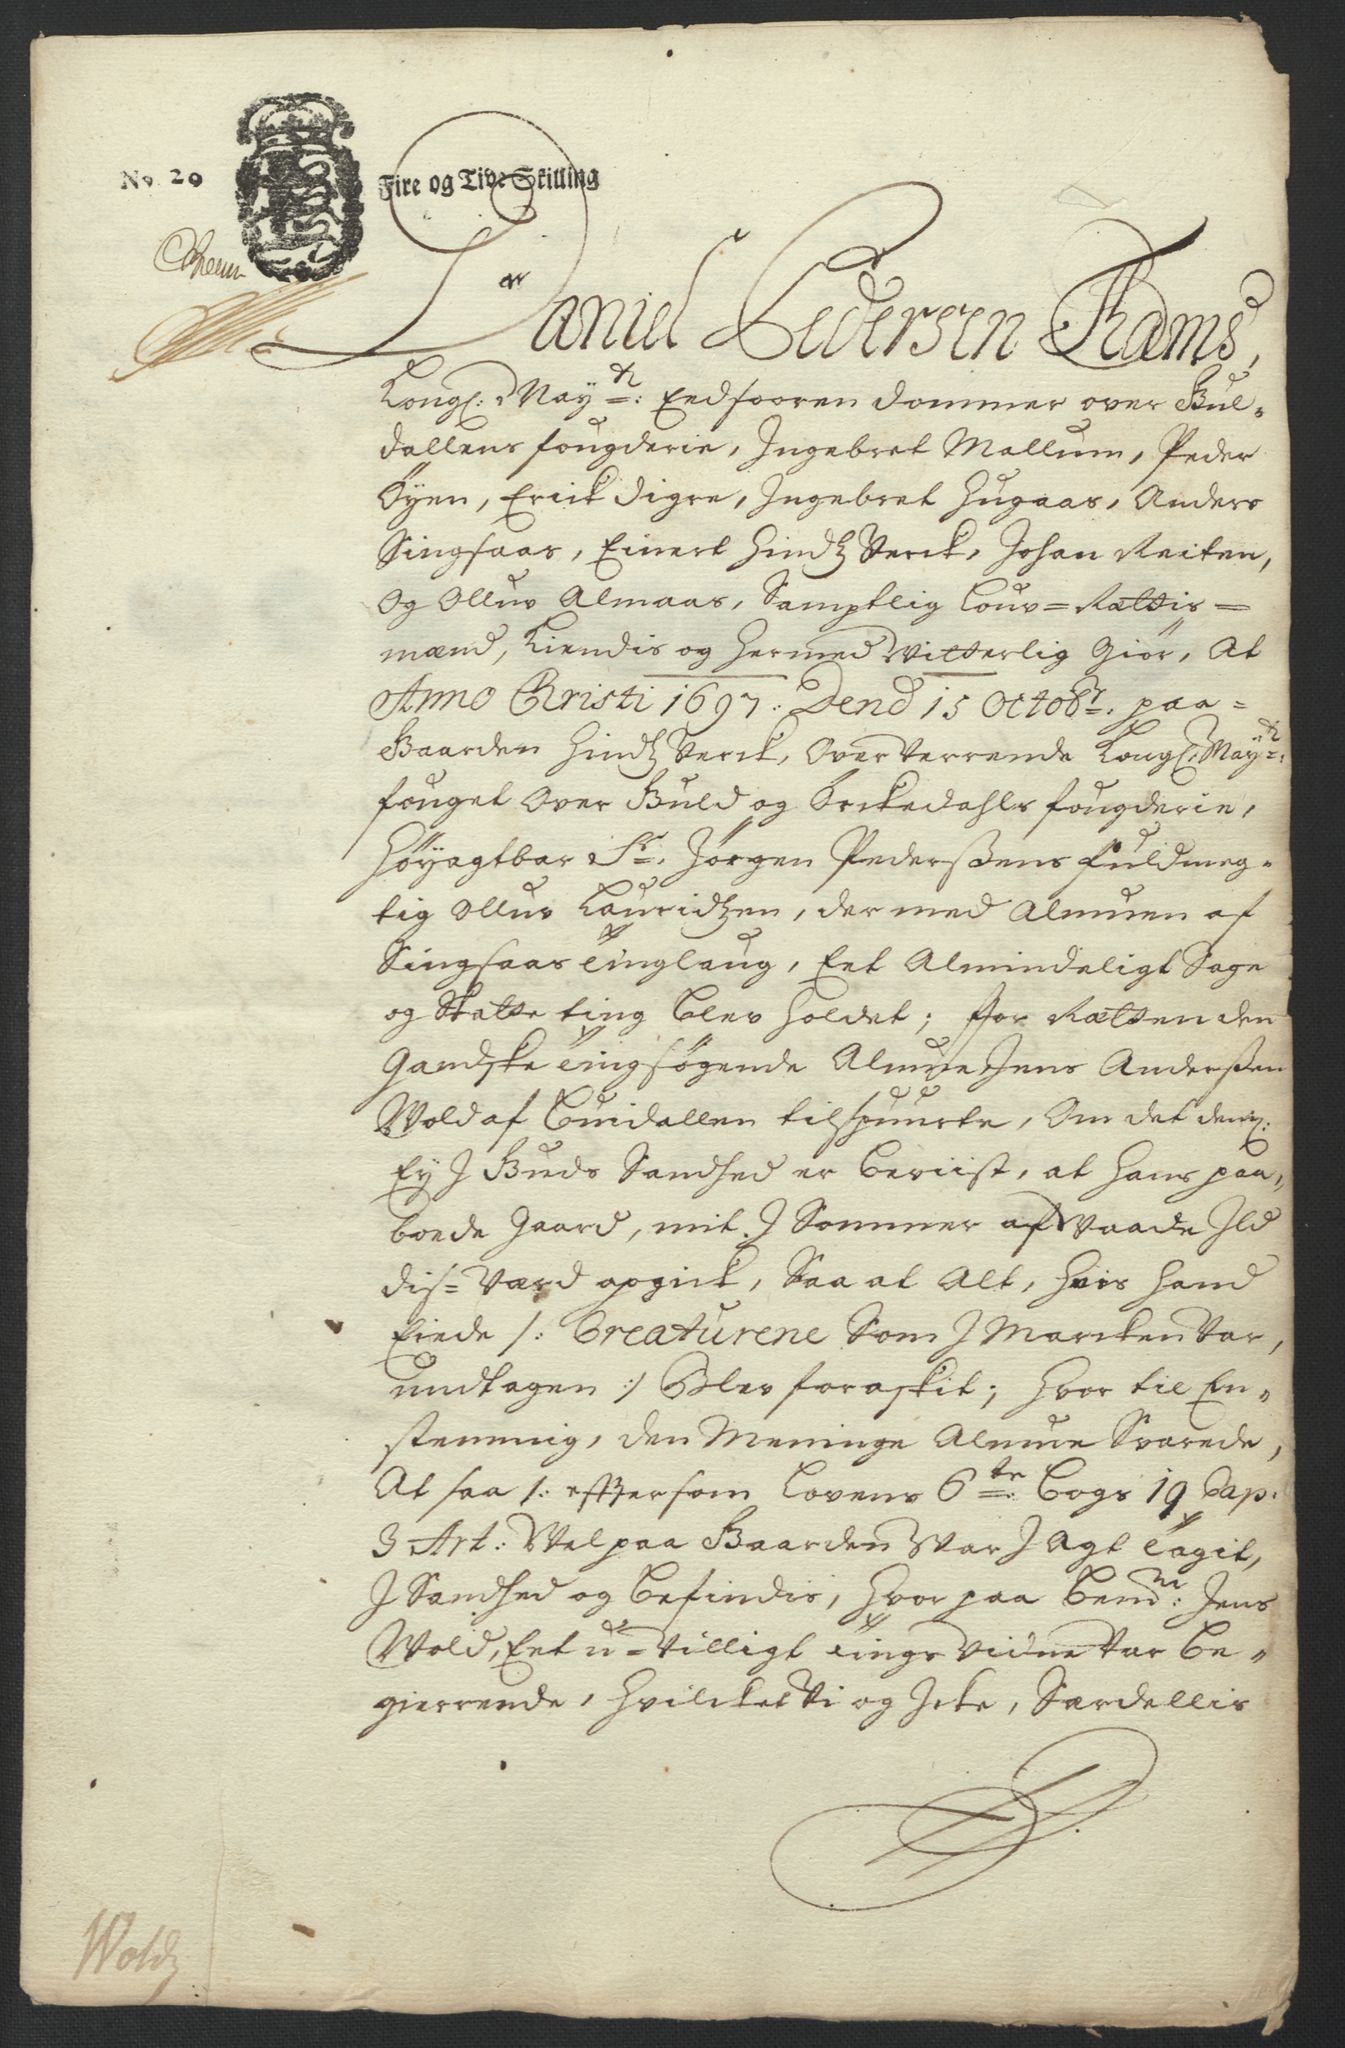 No. 29
Fire og Tive Skilling
Daniel Pedersen Rams,
Kongl: May.tz: Eedsooren dommer over Gul-
dallens fougderie, Ingebret Mallum, Peder
Öyen, Erick digre, Ingebret Hugaas, Anders
Singsaas, Einert Hindtz Verck, Johan Reiten,
Og Olluv Almaas, Samptlig Louv-Rættis-
mænd, Kiendis og hermed Vitterlig Giör, At
Anno Christi 1697: Dend 15 Octobr: paa
Gaarden Hindtz Verck, Overværrende Kongl: May.tz:
fouget Over Guld og Örckedahls fougderie,
Höyagtbar Sr. Jörgen Pederszens fuldmeg-
tig Olluv Lauridtzen, der med Almuen af
Singsaas tinglaug, Eet Almindeligt Sage
og Skatte ting blev holdet; for Rætten den
Gandske tingsögende Almue Jens Anderszen
Wold af Budallen tilspuurte, Om det dennem:
Ey I Guds Sandhed er bevist, at hans paa-
boede Gaard, mit I Sommer af Vaade Ild
dis-Værd opgick, Saa at Alt, hvis hand
Eiede /: Creaturene Som I Marcken Var,
undtagen :/ Blev foraskit; hvor til En-
stemmig, den Meninge Almue Svarede,
At saa /: effter som Lovens 6te: Bogs 19 Cap:
3 Art: Vel paa Gaarden Var I Agt tagit,
I Sandhed og befindis, hvor paa bemte: Jens
Wold, Eet u-Villigt tings Vidne Var be-
gierrende, hvilcket Vi og Icke, Særdellis
Wold